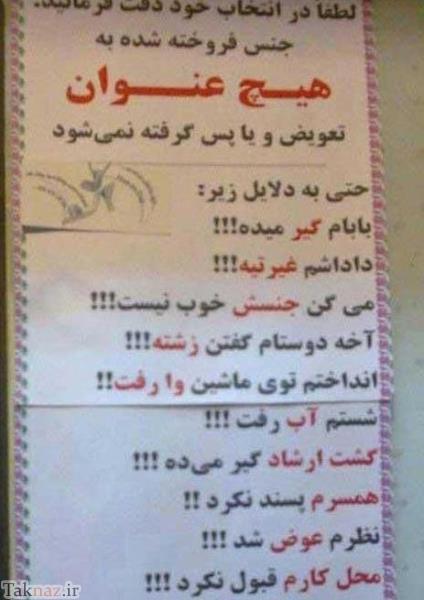 لطفا در انتخاب خود دقت فرمائید.
جنس فروخته شده به
هیچ عنوان
تعویض و یا پس گرفته نمی‌شود
حتی به دلایل زیر:
بابام گیر میده!!!
داداشم غیرتیه!!!
می گن جنسش خوب نیست!!!
آخه دوستام گفتن زشته!!!
انداختم توی ماشین وا رفت!!
شستم آب رفت !!!
گشت ارشاد گیر می‌ده !!!
همسرم پسند نکرد !!
نظرم عوض شد !!!
محل کارم قبول نکرد !!!
Taknaz.ir